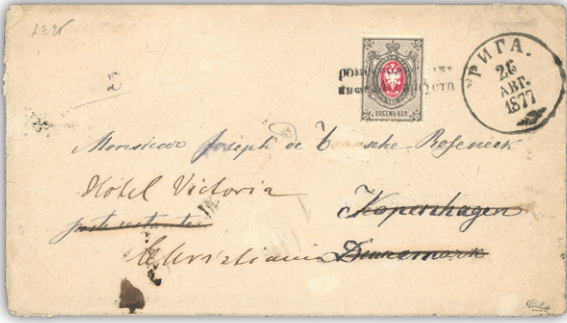 РИГА.
26
АВГ.
1877
ВОСЕМЬ КОП.
Monsieur Joseph de
Hôtel Victoria
Kopenhagen
poste restante
Christiania Dannemark